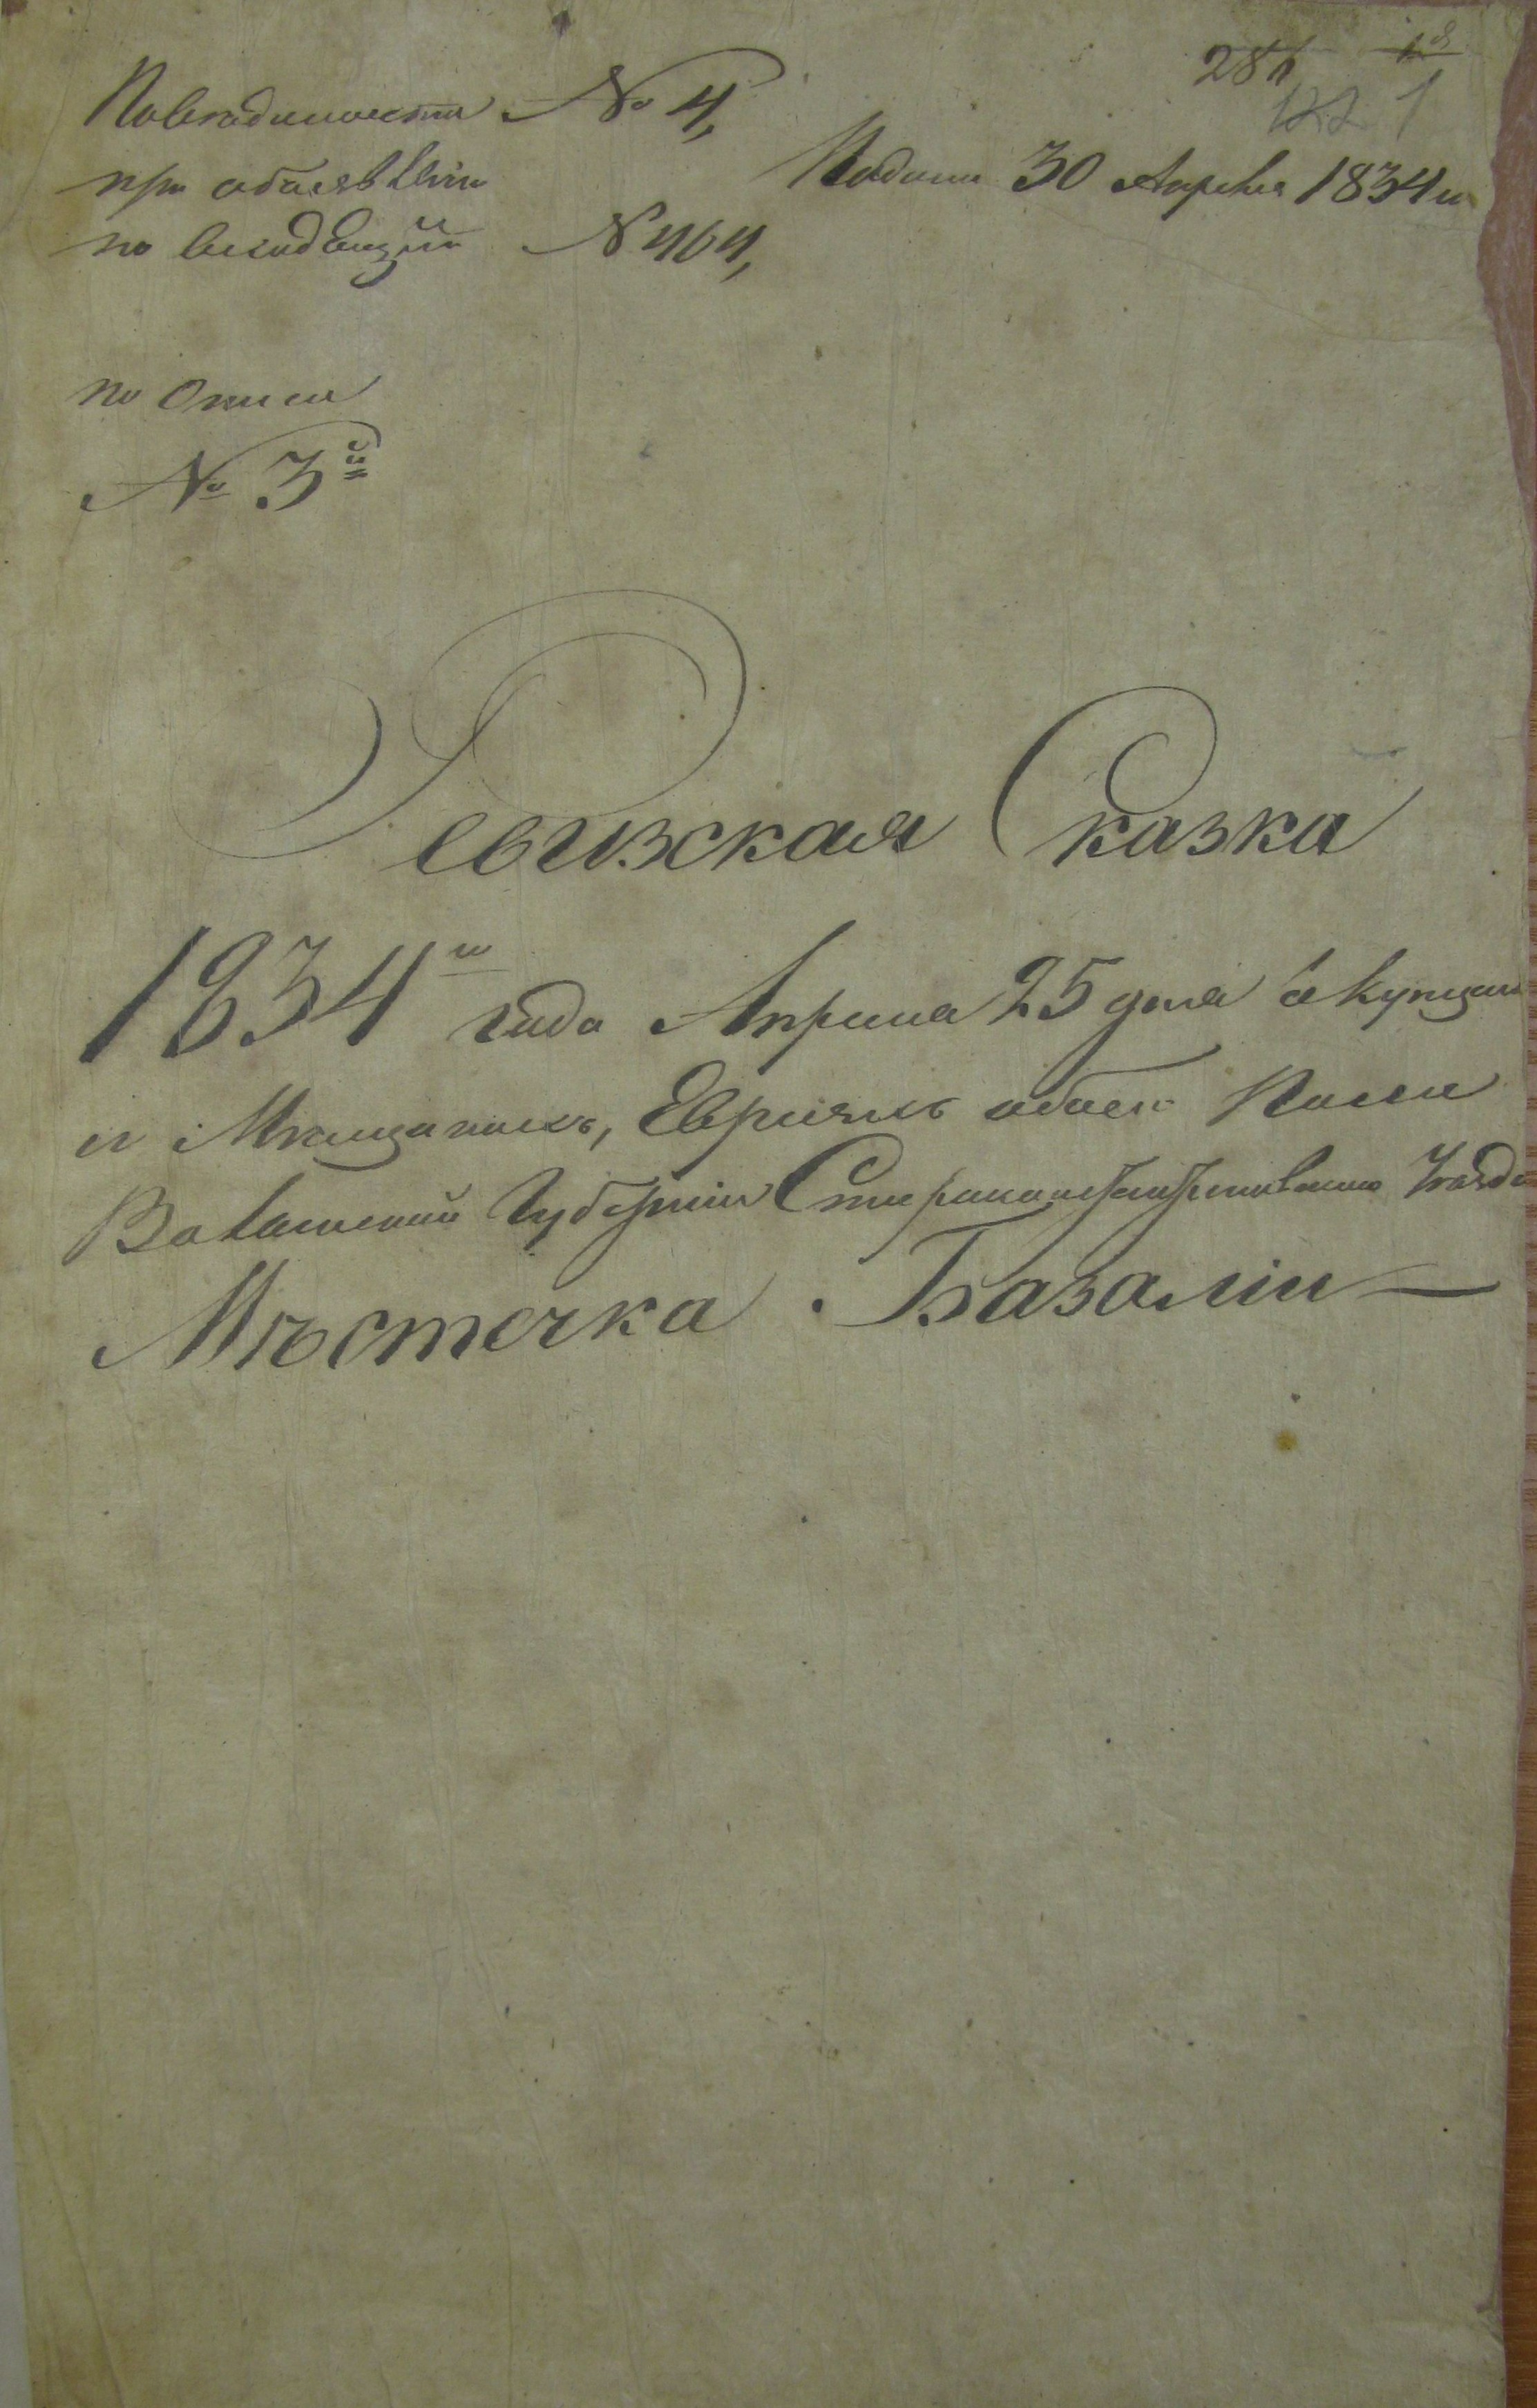 286 1й
122 1
№ 4,
при объявленіи Подана 30 Апреля 1834 го
по № 464,
по Описи
№ 3й
Ревизская Сказка
1834го года Апреля 25 дня о купцахъ
и Мѣщанахъ, Евреяхъ обоего Пола
Волынской Губерніи Староконстантиновскаго Уѣзда
Мѣстечка Базаліи